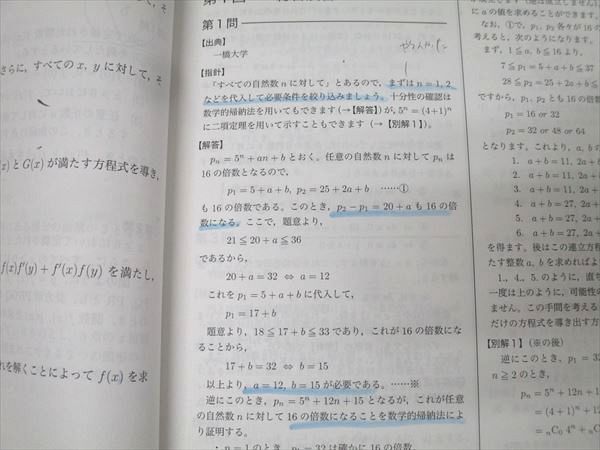 さらに, すべての x, y に対して, そ
x) と G(x) が満たす方程式を導き,
f(x)f′(y) + f′(x)f(y) を満たし,
れを解くことによって f(x) を求
第1問
【出典】
一橋大学
【指針】
「すべての自然数 n に対して」とあるので, まずは n = 1, 2
などを代入して必要条件を絞り込みましょう。十分性の確認は
数学的帰納法を用いてもできます (→【解答】) が, 5ⁿ = (4+1)ⁿ
に二項定理を用いて示すこともできます (→【別解1】).
【解答】
pₙ = 5ⁿ + an + b とおく。任意の自然数 n に対して pₙ は
16 の倍数となるので,
p₁ = 5 + a + b, p₂ = 25 + 2a + b ……①
も 16 の倍数である。このとき, p₂ − p₁ = 20 + a も 16 の倍
数になる。ここで, 題意より,
21 ≦ 20 + a ≦ 36
であるから,
20 + a = 32 ⇔ a = 12
これを p₁ = 5 + a + b に代入して,
p₁ = 17 + b
題意より, 18 ≦ 17 + b ≦ 33 であり, これが 16 の倍数にな
ることから,
17 + b = 32 ⇔ b = 15
以上より, a = 12, b = 15 が必要である。……※
逆にこのとき, pₙ = 5ⁿ + 12n + 15 となるが, これが任意
の自然数 n に対して 16 の倍数になることを数学的帰納法によ
り証明する。
・n = 1 のとき, p₁ = 32 は確かに 16 の倍数.
に a の値を求めることができます.
なお, ①で, p₁, p₂ 各々が 16 の
考えると, 次のようになります。
まず, 1 ≦ a, b ≦ 16 より,
7 ≦ p₁ = 5 + a + b ≦ 37
28 ≦ p₂ = 25 + 2a + b ≦
ですから, p₁, p₂ とも 16 の倍数
p₁ = 16 or 32
p₂ = 32 or 48 or 64
となります。これより, a, b の
1. a + b = 11, 2a +
2. a + b = 11, 2a +
3. a + b = 11, 2a +
4. a + b = 27, 2a +
5. a + b = 27, 2a +
6. a + b = 27, 2a +
を得ます。後はこの連立方程
たす整数 a, b を求めればよ
1., 4., 5. のように, 直ち
一度は上のように, 可能性の
ません。この手間を考える
だけの方程式を導き出す方
【別解1】(※の後)
逆にこのとき, p₁ = 32
n ≧ 2 のとき,
pₙ = 5ⁿ + 12n + 15
= (4+1)ⁿ + 12
= ₙC₀ 4ⁿ +